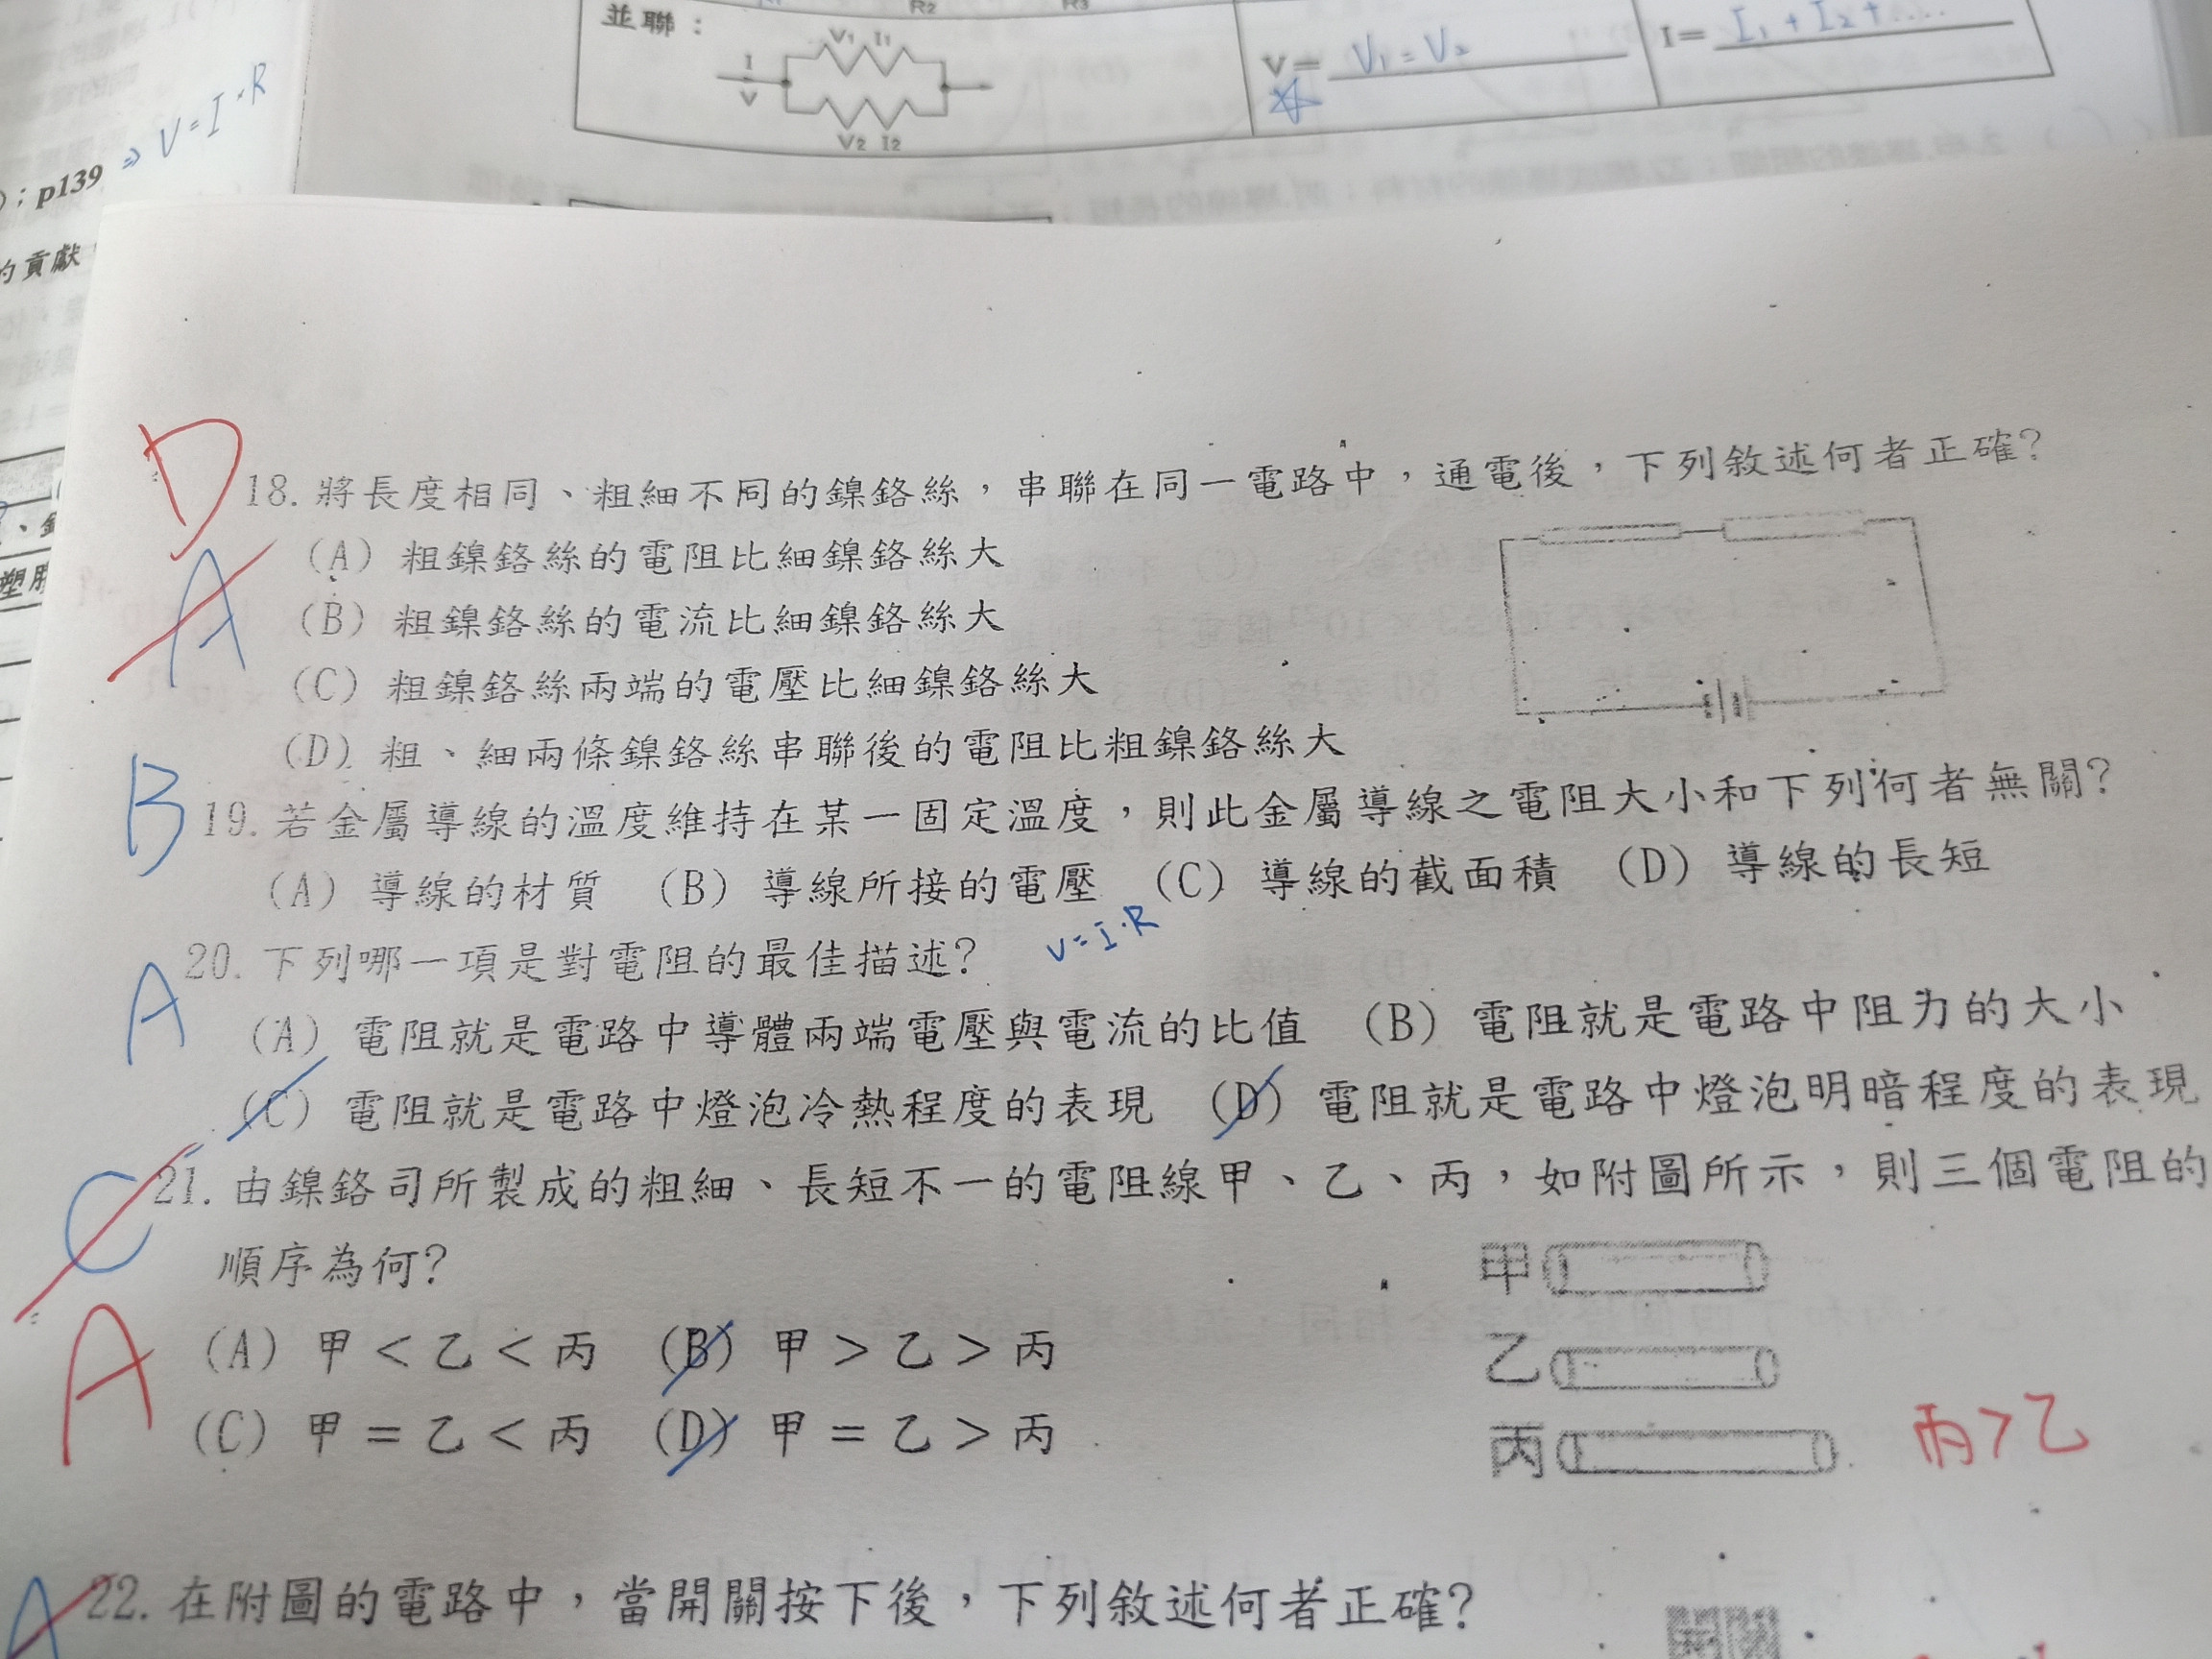 R2 R3
並聯：
V1 I1
I
V
V2 I2
V= V1=V2
I= I1+I2+....
⇒ V=I×R
)；p139
的貢獻
D
18. 將長度相同、粗細不同的鎳鉻絲，串聯在同一電路中，通電後，下列敘述何者正確?
A
(A) 粗鎳鉻絲的電阻比細鎳鉻絲大
(B) 粗鎳鉻絲的電流比細鎳鉻絲大
(C) 粗鎳鉻絲兩端的電壓比細鎳鉻絲大
(D) 粗、細兩條鎳鉻絲串聯後的電阻比粗鎳鉻絲大
B
19. 若金屬導線的溫度維持在某一固定溫度，則此金屬導線之電阻大小和下列何者無關?
(A) 導線的材質 (B) 導線所接的電壓 (C) 導線的截面積 (D) 導線的長短
V=I·R
A
20. 下列哪一項是對電阻的最佳描述?
(A) 電阻就是電路中導體兩端電壓與電流的比值 (B) 電阻就是電路中阻力的大小
(C) 電阻就是電路中燈泡冷熱程度的表現 (D) 電阻就是電路中燈泡明暗程度的表現
C
21. 由鎳鉻司所製成的粗細、長短不一的電阻線甲、乙、丙，如附圖所示，則三個電阻的
順序為何?
A
(A) 甲＜乙＜丙 (B) 甲＞乙＞丙
(C) 甲＝乙＜丙 (D) 甲＝乙＞丙
甲
乙
丙
丙>乙
A
22. 在附圖的電路中，當開關按下後，下列敘述何者正確?
開關